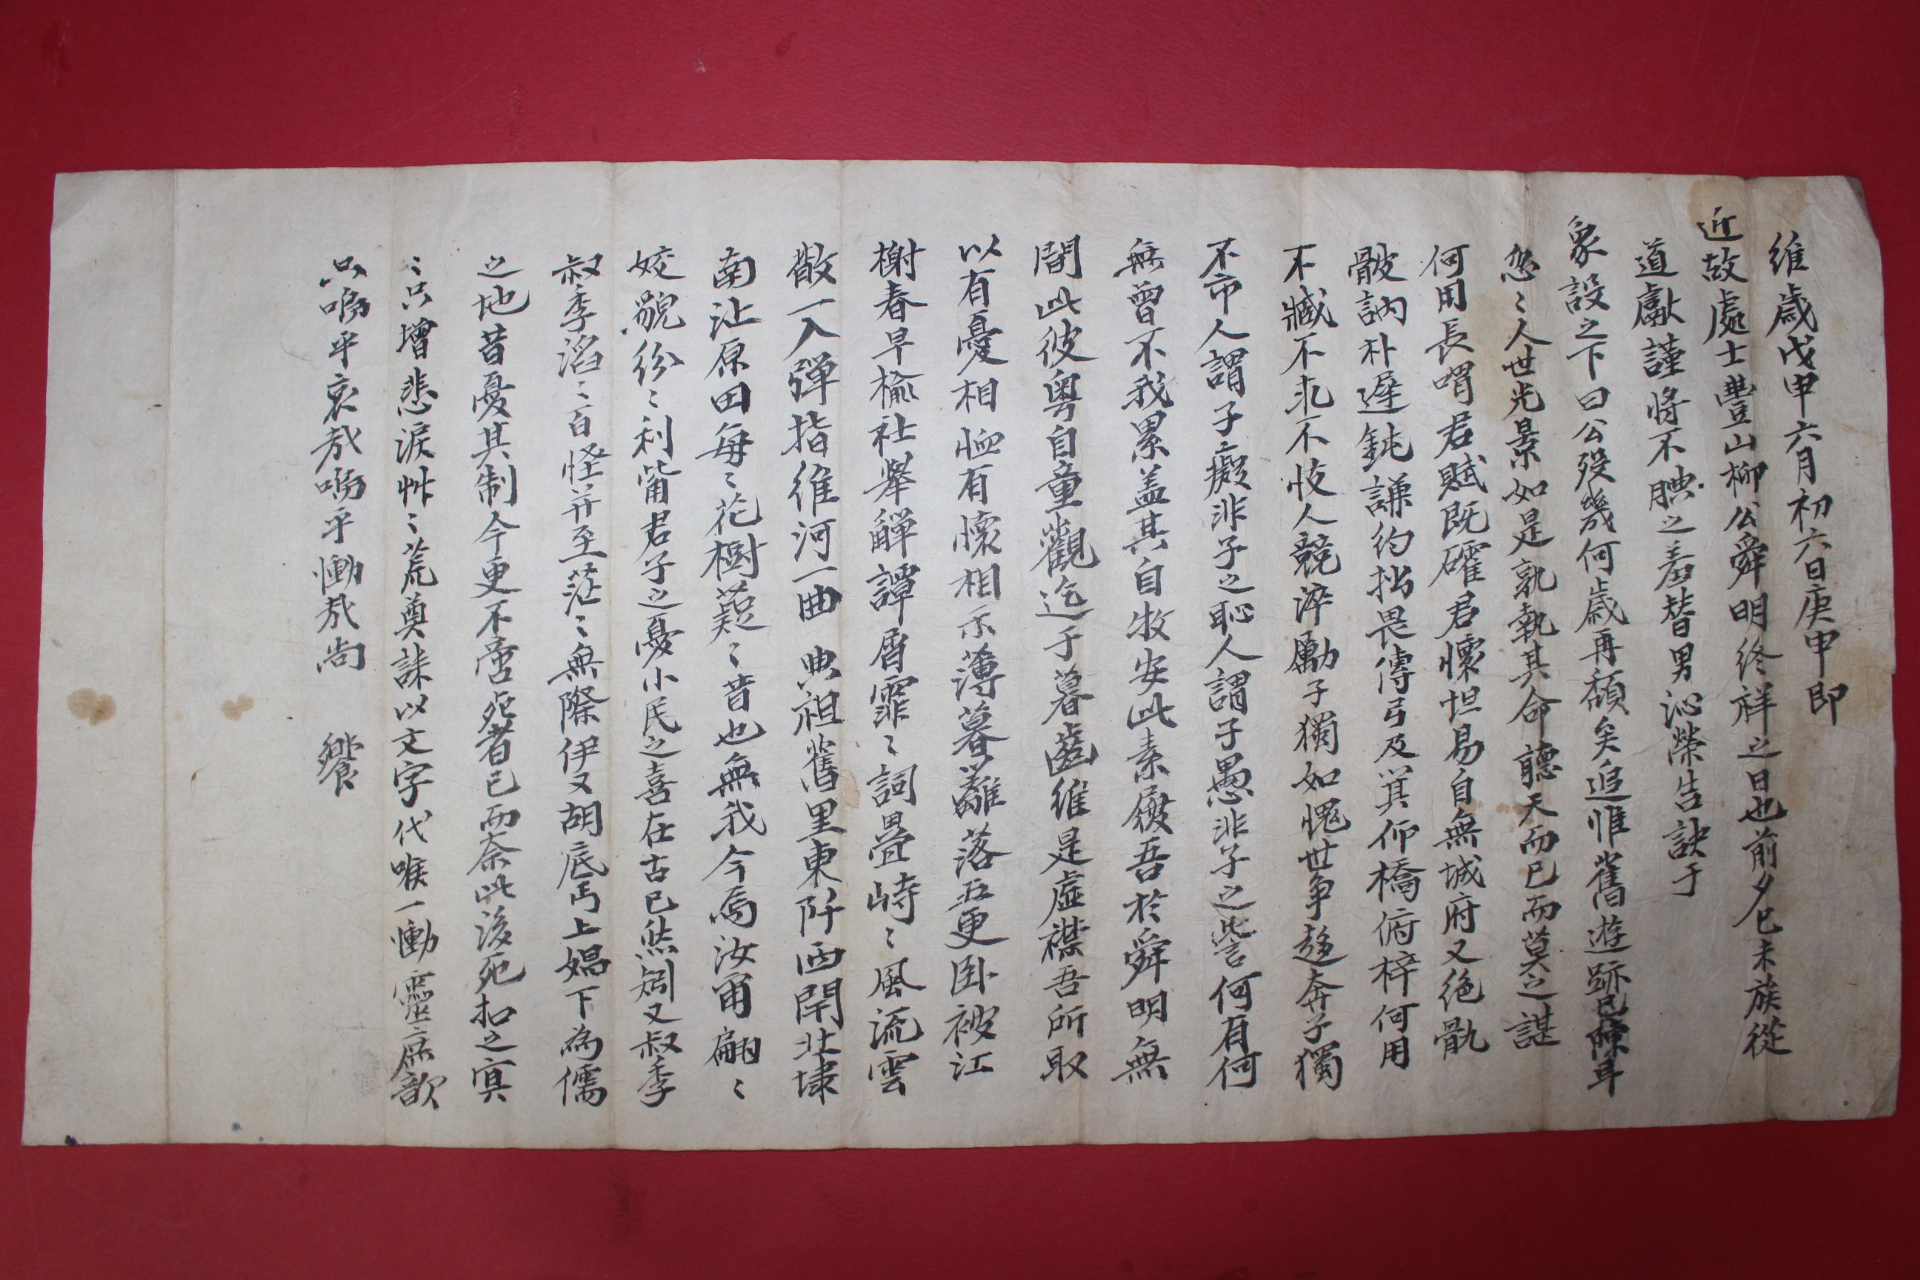 維歲戊申六月初六日庚申即
近故處士豐山柳公舜明終祥之日也前夕己未族從
道獻謹將不腆之羞替男沁榮告訣于
象設之下曰公歿幾何歲再頹矣追惟舊遊跡已
怱〻人世光景如是孰執其命聽天而已而莫之諶
何用長喟君賦旣確君懷坦易自無城府又絶骩
骳訥朴遲鈍謙約拙畏傳弓及箕仰橋俯梓何用
不臧不求不忮人競淬勵子獨如愧世爭趨奔子獨
不市人謂子癡非子之恥人謂子愚非子之訾何有何
無曾不我累盖其自牧安此素履吾於舜明無
間此彼粤自童觀迄于暮齒維是虛襟吾所取
以有憂相恤有懷相示薄暮籬落五更卧被江
榭春早楡社擧觶譚屑霏〻詞疊峙〻風流雲
散一入彈指維河一曲 典祖舊里東阡西閈北埭
南沚原田每〻花樹〻昔也無我今焉汝甫翩〻
姣㒵份〻利莆君子之憂小民之喜在古已然矧又叔季
叔季滔〻百怪幷至茫〻無際伊又胡底丐上娼下為儒
之地昔憂其制今更不啻死者已而奈此後死扣之冥
〻只增悲淚艸〻荒奠誄以文字代喉一慟靈庶歆
只嗚乎哀哉嗚乎慟哉尚 饗